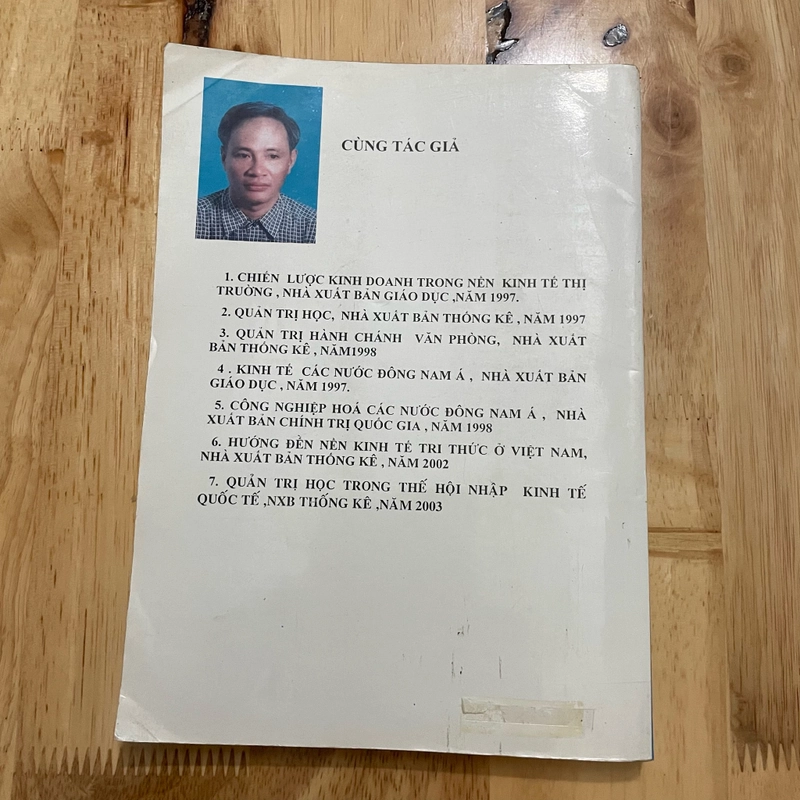 CÙNG TÁC GIẢ
1. CHIẾN LƯỢC KINH DOANH TRONG NỀN KINH TẾ THỊ
TRƯỜNG , NHÀ XUẤT BẢN GIÁO DỤC ,NĂM 1997.
2. QUẢN TRỊ HỌC, NHÀ XUẤT BẢN THỐNG KÊ , NĂM 1997
3. QUẢN TRỊ HÀNH CHÁNH VĂN PHÒNG, NHÀ XUẤT
BẢN THỐNG KÊ , NĂM1998
4 . KINH TẾ CÁC NƯỚC ĐÔNG NAM Á , NHÀ XUẤT BẢN
GIÁO DỤC , NĂM 1997.
5. CÔNG NGHIỆP HOÁ CÁC NƯỚC ĐÔNG NAM Á , NHÀ
XUẤT BẢN CHÍNH TRỊ QUỐC GIA , NĂM 1998
6. HƯỚNG ĐẾN NỀN KINH TẾ TRI THỨC Ở VIỆT NAM,
NHÀ XUẤT BẢN THỐNG KÊ , NĂM 2002
7. QUẢN TRỊ HỌC TRONG THẾ HỘI NHẬP KINH TẾ
QUỐC TẾ ,NXB THỐNG KÊ ,NĂM 2003